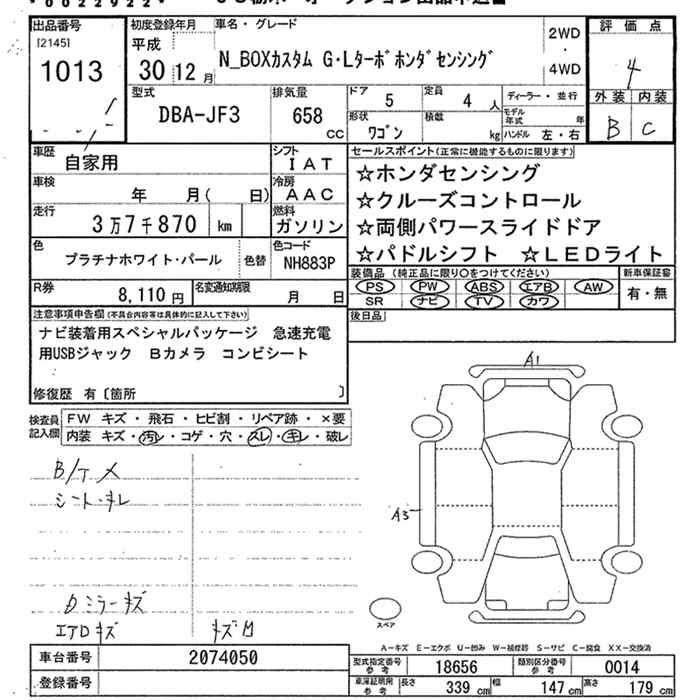 *0022922*
出品番号
[2145]
1013
初度登録年月
平成
30 12月
車名・グレード
N_BOXカスタム G・Lターボホンダセンシング
2WD
・
4WD
評価点
4
外装 内装
B C
型式
DBA-JF3
排気量
658
cc
ドア
5
定員
4 人
形状
ワゴン
積載
kg
ディーラー・並行
モデル年式 年
ハンドル 左・右
車歴
自家用
シフト
IAT
車検
年 月( 日)
冷房
AAC
走行
3万7千870 km
燃料
ガソリン
色
プラチナホワイト・パール
色替
色コード
NH883P
R券
8,110円
名変通知期限
月 日
セールスポイント(正常に機能するものに限ります)
☆ホンダセンシング
☆クルーズコントロール
☆両側パワースライドドア
☆パドルシフト ☆LEDライト
装備品(純正品に限り○をつけてください)
PS PW ABS エアB AW
SR ナビ TV カワ
新車保証書
有・無
後日品
注意事項申告欄(不具合内容等は具体的に記入して下さい)
ナビ装着用スペシャルパッケージ 急速充電
用USBジャック Bカメラ コンビシート
修復歴 有〔箇所 〕
検査員記入欄
FW キズ・飛石・ヒビ割・リペア跡・×要
内装 キズ・汚レ・コゲ・穴・スレ・キレ・破レ
B/ケメ
シートキレ
Dミラーキズ
エアDキズ
キズ凹
A1
A3
スペア
A−キズ E−エクボ U−凹み W−補修跡 S−サビ C−腐食 XX−交換済
車台番号
2074050
登録番号
型式指定番号
参考
18656
類別区分番号
参考
0014
車庫証明用
参考
長さ 339 cm
幅 147 cm
高さ 179 cm